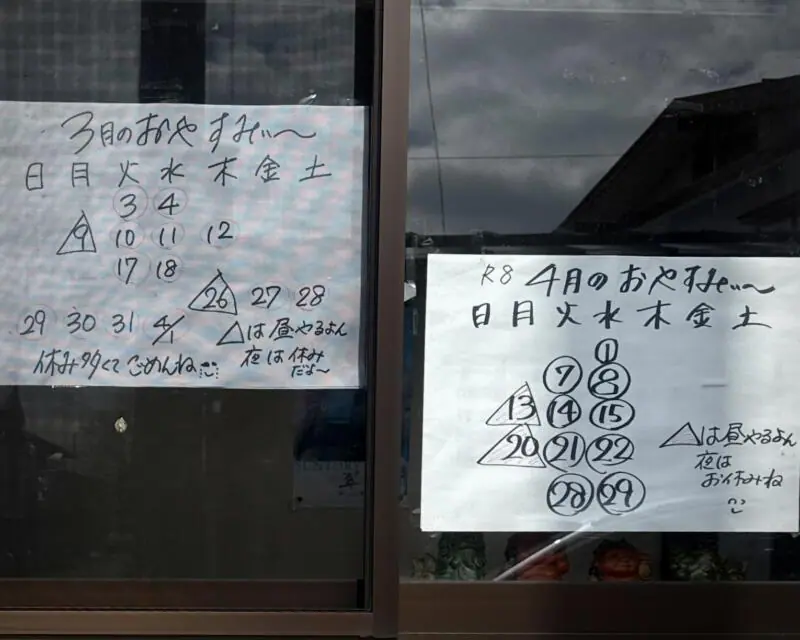 3月のおやすみぃ〜
日 月 火 水 木 金 土
3 4
9 10 11 12
17 18
26 27 28
29 30 31 4/1
△は昼やるよん
夜は休み
だよ〜
休み多くてごめんね
R8 4月のおやすみぃ〜
日 月 火 水 木 金 土
1
7 8
13 14 15
20 21 22
28 29
△は昼やるよん
夜は
お休みね